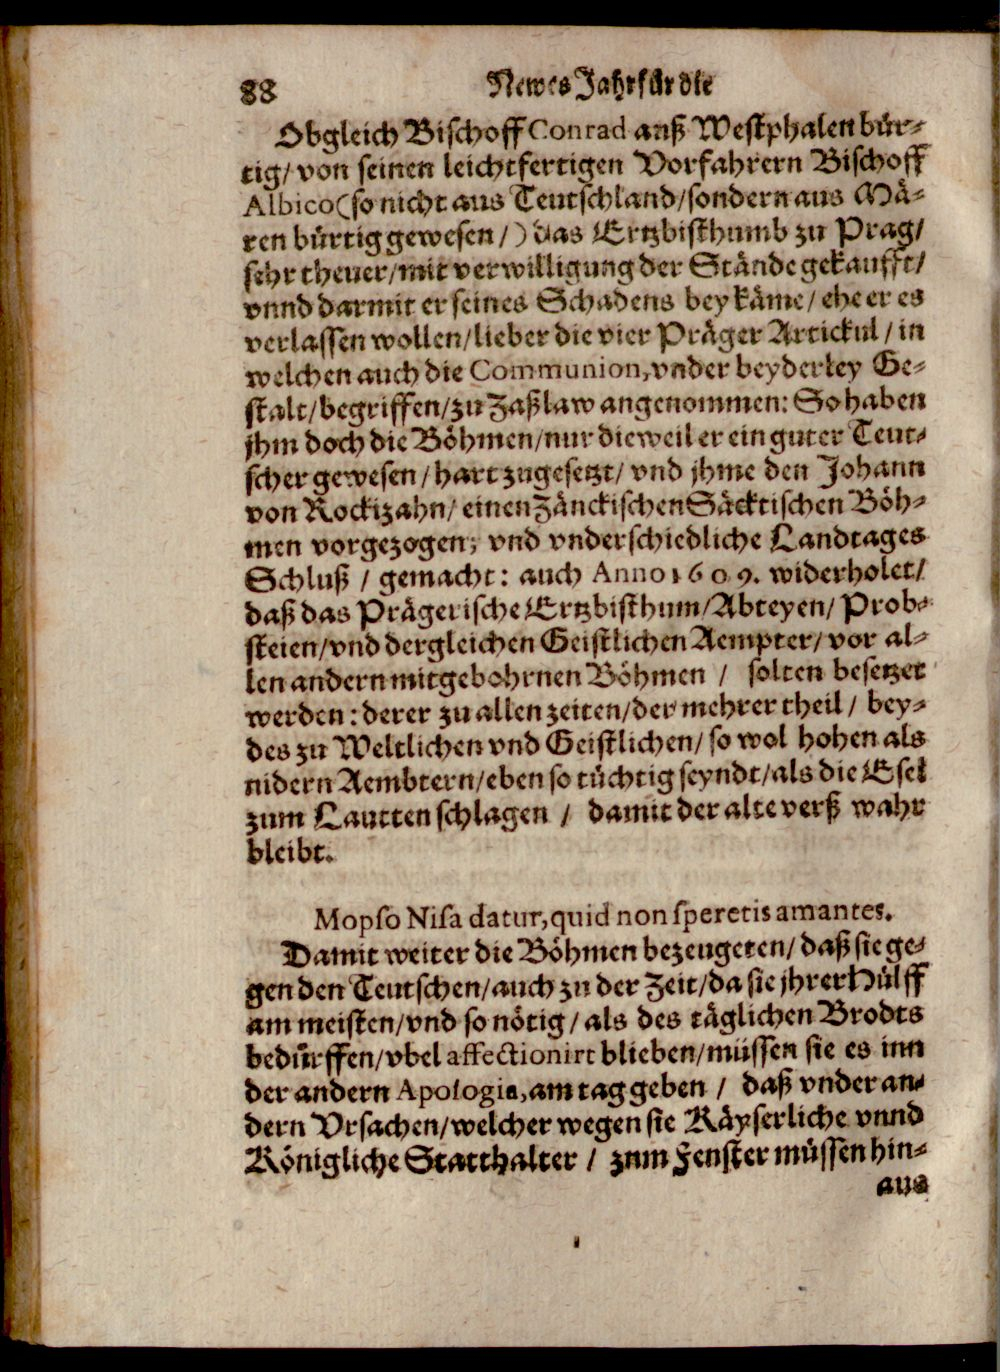 88 Newes Jahr für die
Obgleich Bischoff Conrad auß Westphalen bür-
tig/ von seinen leichtfertigen Vorfahrern Bischoff
Albico (so nicht aus Teutschland/sondern aus Mä-
ren bürtig gewesen/) das Ertzbisthumb zu Prag/
sehr theuer/mit verwilligung der Stände gekaufft/
vnnd darmit er seines Schadens bey käme/ ehe er es
verlassen wollen/lieber die vier Präger Artickul/ in
welchen auch die Communion, vnder beyderley Ge-
stalt/begriffen/zu Zaßlaw angenommen: So haben
jhm doch die Böhmen/nur dieweil er ein guter Teut-
scher gewesen/hart zugesetzt/ vnd jhme den Johann
von Rockizahn/ einen Zänckischen Säcktischen Böh-
men vorgezogen; vnd vnderschiedliche Landtages
Schluß / gemacht: auch Anno 1609. widerholet/
daß das Prägerische Ertzbisthum/Abteyen/ Prob-
steien/vnd dergleichen Geistlichen Aempter/ vor al-
len andern mitgebohrnen Böhmen / solten besetzet
werden: derer zu allen zeiten/der mehrer theil/ bey-
des zu Weltlichen vnd Geistlichen/ so wol hohen als
nidern Aembtern/eben so tüchtig seyndt/als die Esel
zum Lautten schlagen / damit der alte verß wahr
bleibt.
Mopso Nisa datur, quid non speretis amantes.
Damit weiter die Böhmen bezeugeten/ daß sie ge-
gen den Teutschen/auch zu der Zeit/da sie jhrer Hülff
am meisten/vnd so nötig/ als des täglichen Brodts
bedürffen/vbel affectionirt blieben/müssen sie es inn
der andern Apologia, am tag geben / daß vnder an-
dern Vrsachen/welcher wegen sie Käyserliche vnnd
Königliche Statthalter / zum Fenster müssen hin-
aus